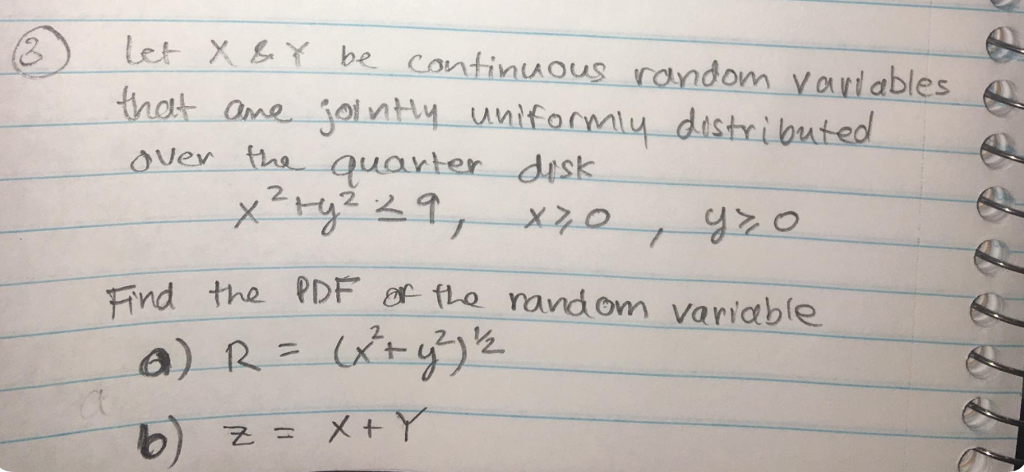 3 Let X & Y be continuous random variables
that are jointly uniformly distributed
over the quarter disk
x²+y² ≤ 9, x≥0, y≥0
Find the PDF of the random variable
a) R = (x²+y²)^½
b) Z = X+Y